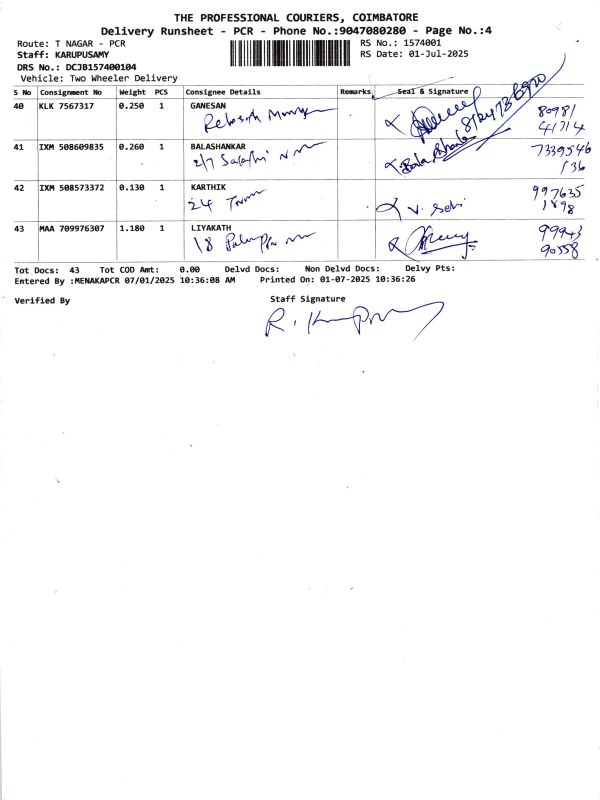 THE PROFESSIONAL COURIERS, COIMBATORE
Delivery Runsheet - PCR - Phone No.:9047080280 - Page No.:4
Route: T NAGAR - PCR
RS No.: 1574001
Staff: KARUPUSAMY
RS Date: 01-Jul-2025
DRS No.: DCJB157400104
Vehicle: Two Wheeler Delivery
S No Consignment No Weight PCS Consignee Details Remarks Seal & Signature
40 KLK 7567317 0.250 1 GANESAN
80981
41714
41 IXM 508609835 0.260 1 BALASHANKAR
7339546
136
42 IXM 508573372 0.130 1 KARTHIK
24
997635
1898
43 MAA 709976307 1.180 1 LIYAKATH
18
99943
90558
Tot Docs: 43 Tot COD Amt: 0.00 Delvd Docs: Non Delvd Docs: Delvy Pts:
Entered By :MENAKAPCR 07/01/2025 10:36:08 AM Printed On: 01-07-2025 10:36:26
Verified By
Staff Signature